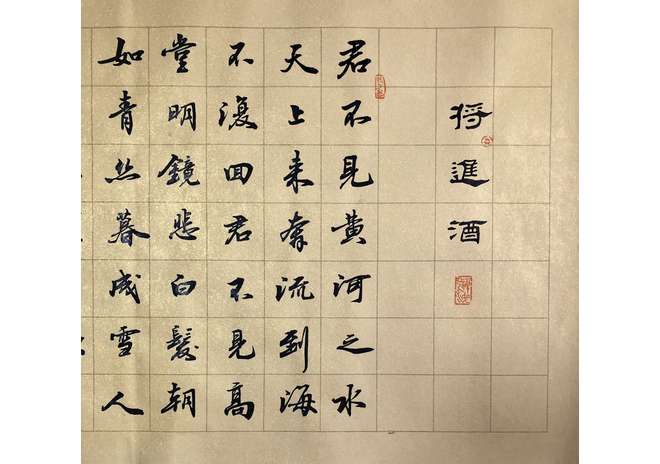 将進酒
君不見黄河之水
天上来奔流到海
不復回君不見高
堂明鏡悲白髮朝
如青丝暮成雪人